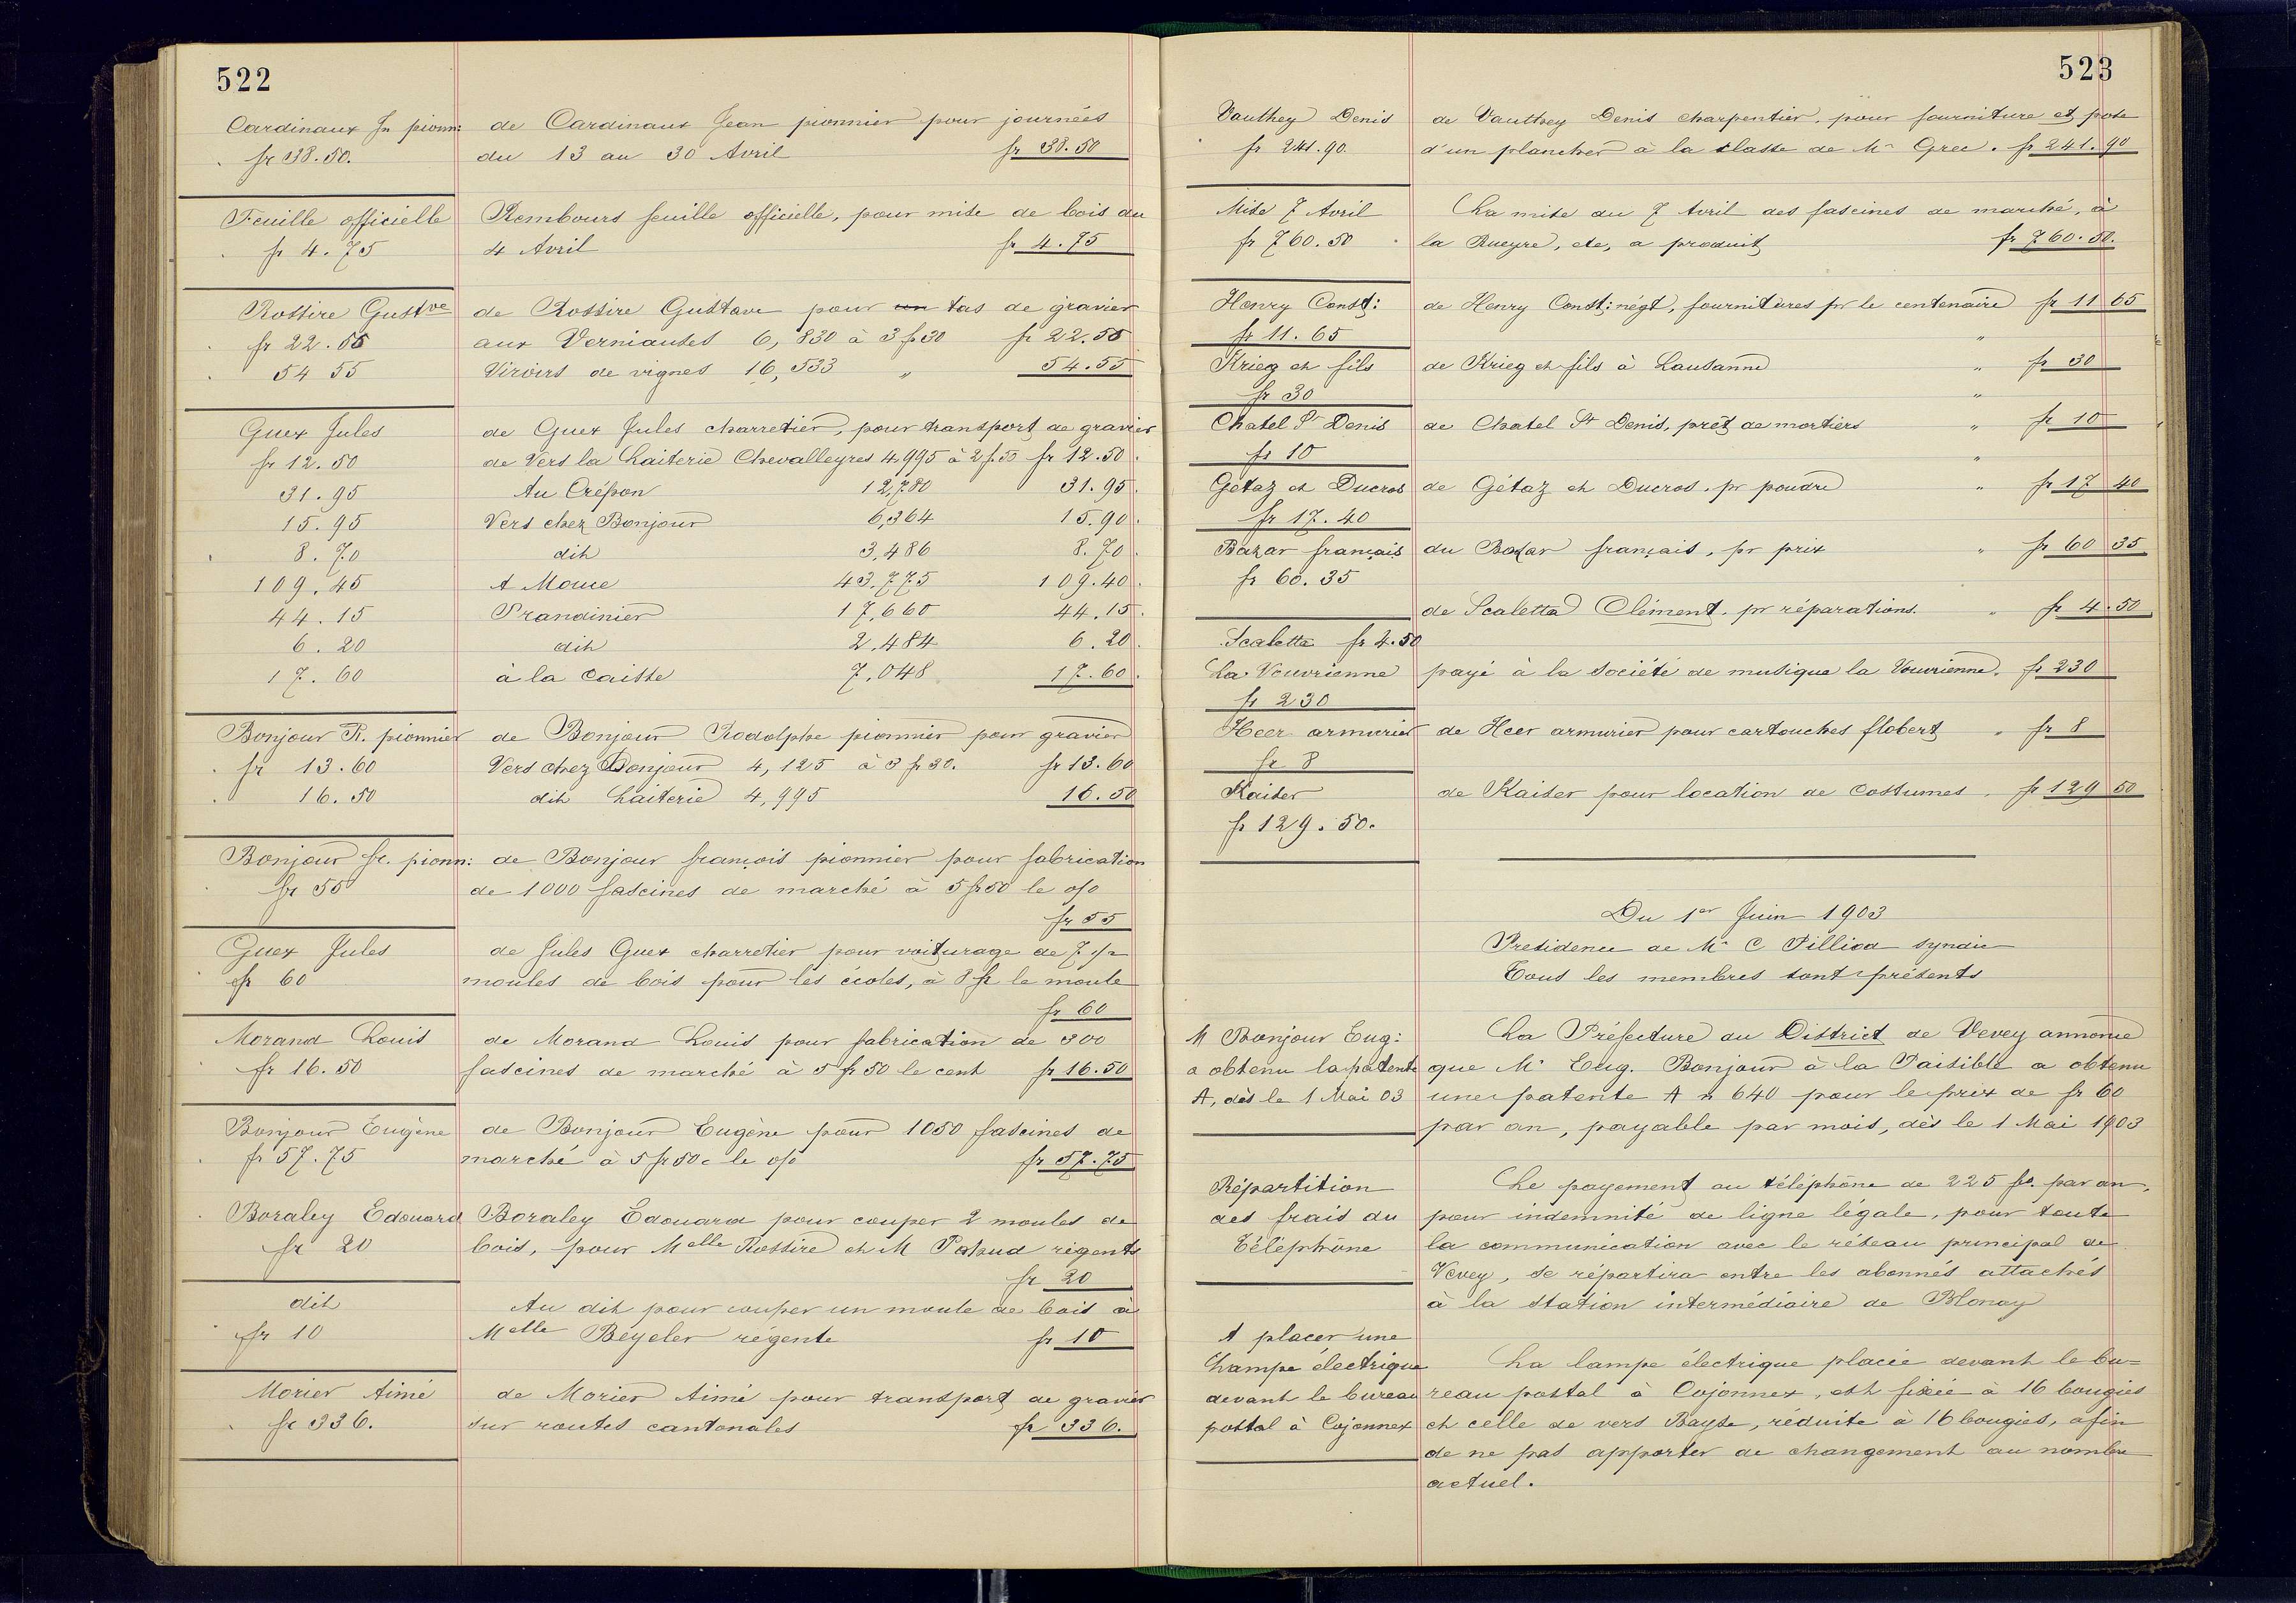 522
Cardinaux Jn pionn: de Cardinaux Jean pionnier pour journées
fr 38.50. du 13 au 30 Avril fr 38.50
Feuille officielle Rembours feuille officielle, pour mise de bois du
fr 4.75 4 Avril fr 4.75
Rossire Gustve de Rossire Gustave pour un tas de gravier
fr 22.55 aux Verniaudes 6,830 à 3 fr 30 fr 22.55
54 55 Virours de vignes 16,533 " 54.55
Guex Jules de Guex Jules charretier, pour transport de gravier
fr 12.50 de Vers la Laiterie Chevalleyres 4,995 à 2 fr. 50 fr 12.50.
31.95 Au Crépon 12,780 31.95.
15.95 Vers chez Bonjour 6,364 15.90.
8.70 dit 3,486 8.70.
109.45 A Moue 43,775 109.40.
44.15 Prandinier 17,660 44.15.
6.20 dit 2,484 6.20.
17.60 à la Caisse 7,048 17.60.
Bonjour R. pionnier de Bonjour Rodolphe pionnier pour gravier
fr 13.60 Vers chez Bonjour 4,125 à 3 fr 30. fr 13.60
16.50 dit Laiterie 4,995 16.50
Bonjour fr. pionn: de Bonjour françois pionnier pour fabrication
fr 55 de 1000 fascines de marché à 5 fr 50 le o/o
fr 55
Guex Jules de Jules Guex charretier pour voiturage de 7 1/2
fr 60 moules de bois pour les écoles, à 8 fr le moule
fr 60
Morand Louis de Morand Louis pour fabrication de 300
fr 16.50 fascines de marché à 5 fr 50 le cent fr 16.50
Bonjour Eugène de Bonjour Eugène pour 1050 fascines de
fr 57.75 marché à 5 fr 50 c le o/o fr 57.75
Boraley Edouard Boraley Edouard pour couper 2 moules de
fr 20 bois, pour Melle Rossire et M Pahud régents
fr 20
dit Au dit pour couper un moule de bois à
fr 10 Melle Beyeler régente fr 10
Morier Aimé de Morier Aimé pour transport de gravier
fr 336. sur routes cantonales fr 336.
523
Vauthey Denis de Vauthey Denis charpentier, pour fourniture et pose
fr 241.90. d'un plancher à la classe de Mr Grec. fr 241.90
Mise 7 Avril La mise du 7 Avril des fascines de marché, à
fr 760.50 la Rueyre, etc, a produit fr 760.50.
Henry Const: de Henry Const: négt, fournitures pr le centenaire fr 11 65
fr 11.65 "
Krieg et fils de Krieg et fils à Lausanne " fr 30
fr 30 "
Chatel St Denis de Chatel St Denis, prêt de mortiers " fr 10
fr 10 "
Gétaz et Ducros de Gétaz et Ducros, pr poudre " fr 17 40
fr 17.40
Bazar français du Bazar français, pr prix " fr 60 35
fr 60.35
de Scaletta Clément, pr réparations. " fr 4.50
Scaletta fr 4.50
La Vouvrienne payé à la société de musique la Vouvrienne. fr 230
fr 230
Heer armurier de Heer armurier pour cartouches flobert " fr 8
fr 8
Kaiser de Kaiser pour location de costumes. fr 129 50
fr 129.50.
Du 1er Juin 1903
Présidence de Mr C Pilliod syndic
Tous les membres sont présents
M Bonjour Eug: La Préfecture du District de Vevey annonce
a obtenu la patente que Mr Eug. Bonjour à la Paisible a obtenu
A, dès le 1 Mai 03 une patente A n 640 pour le prix de fr 60
par an, payable par mois, dès le 1 Mai 1903
Répartition Le payement au téléphône de 225 fr. par an,
des frais du pour indemnité de ligne légale, pour toute
Téléphône la communication avec le réseau principal de
Vevey, se répartira entre les abonnés attachés
à la station intermédiaire de Blonay
A placer une
Lampe électrique La lampe électrique placée devant le bu=
devant le bureau reau postal à Cojonnex, est fixée à 16 bougies
postal à Cojonnex et celle de vers Bayse, réduite à 16 bougies, afin
de ne pas apporter de changement au nombre
actuel.